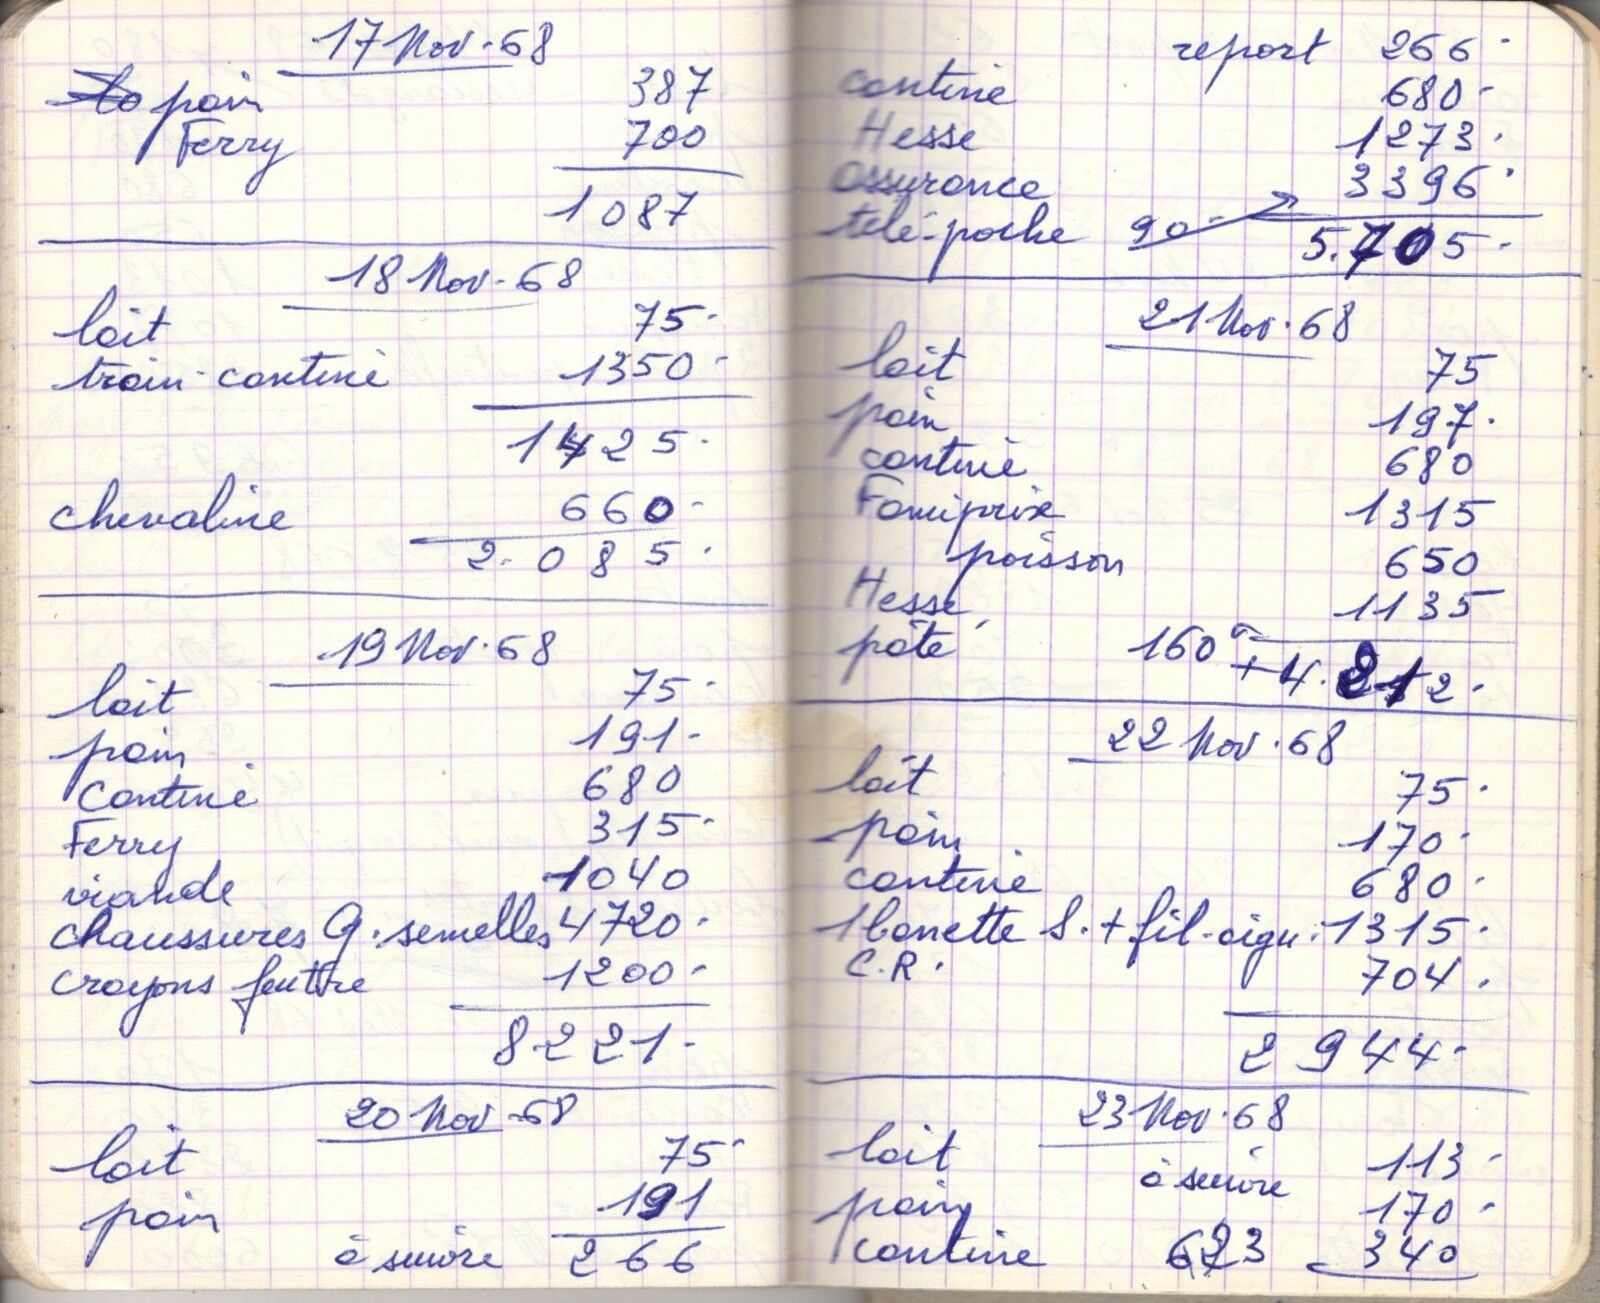 17 Nov. 68
pain 387
Ferry 700
1087
18 Nov. 68
lait 75.
train-cantine 1350.
1425.
chevaline 660.
2.085.
19 Nov. 68
lait 75.
pain 191.
Cantine 680
Ferry 315.
viande 1040
chaussures G. semelles 4720.
crayons feutre 1200.
8221.
20 Nov. 68
lait 75.
pain 191
à suivre 266
report 266.
cantine 680.
Hesse 1273.
assurance 3396.
télé-poche 90. 5.705.
21 Nov. 68
lait 75
pain 197.
cantine 680
Famiprix 1315
poisson 650
Hesse 1135
pâté 160 + 4.212.
22 Nov. 68
lait 75.
pain 170.
cantine 680.
1 barrette S. + fil-aigu. 1315.
C.R. 704.
2944.
23 Nov. 68
lait 113.
à suivre
pain 170.
cantine 623 340